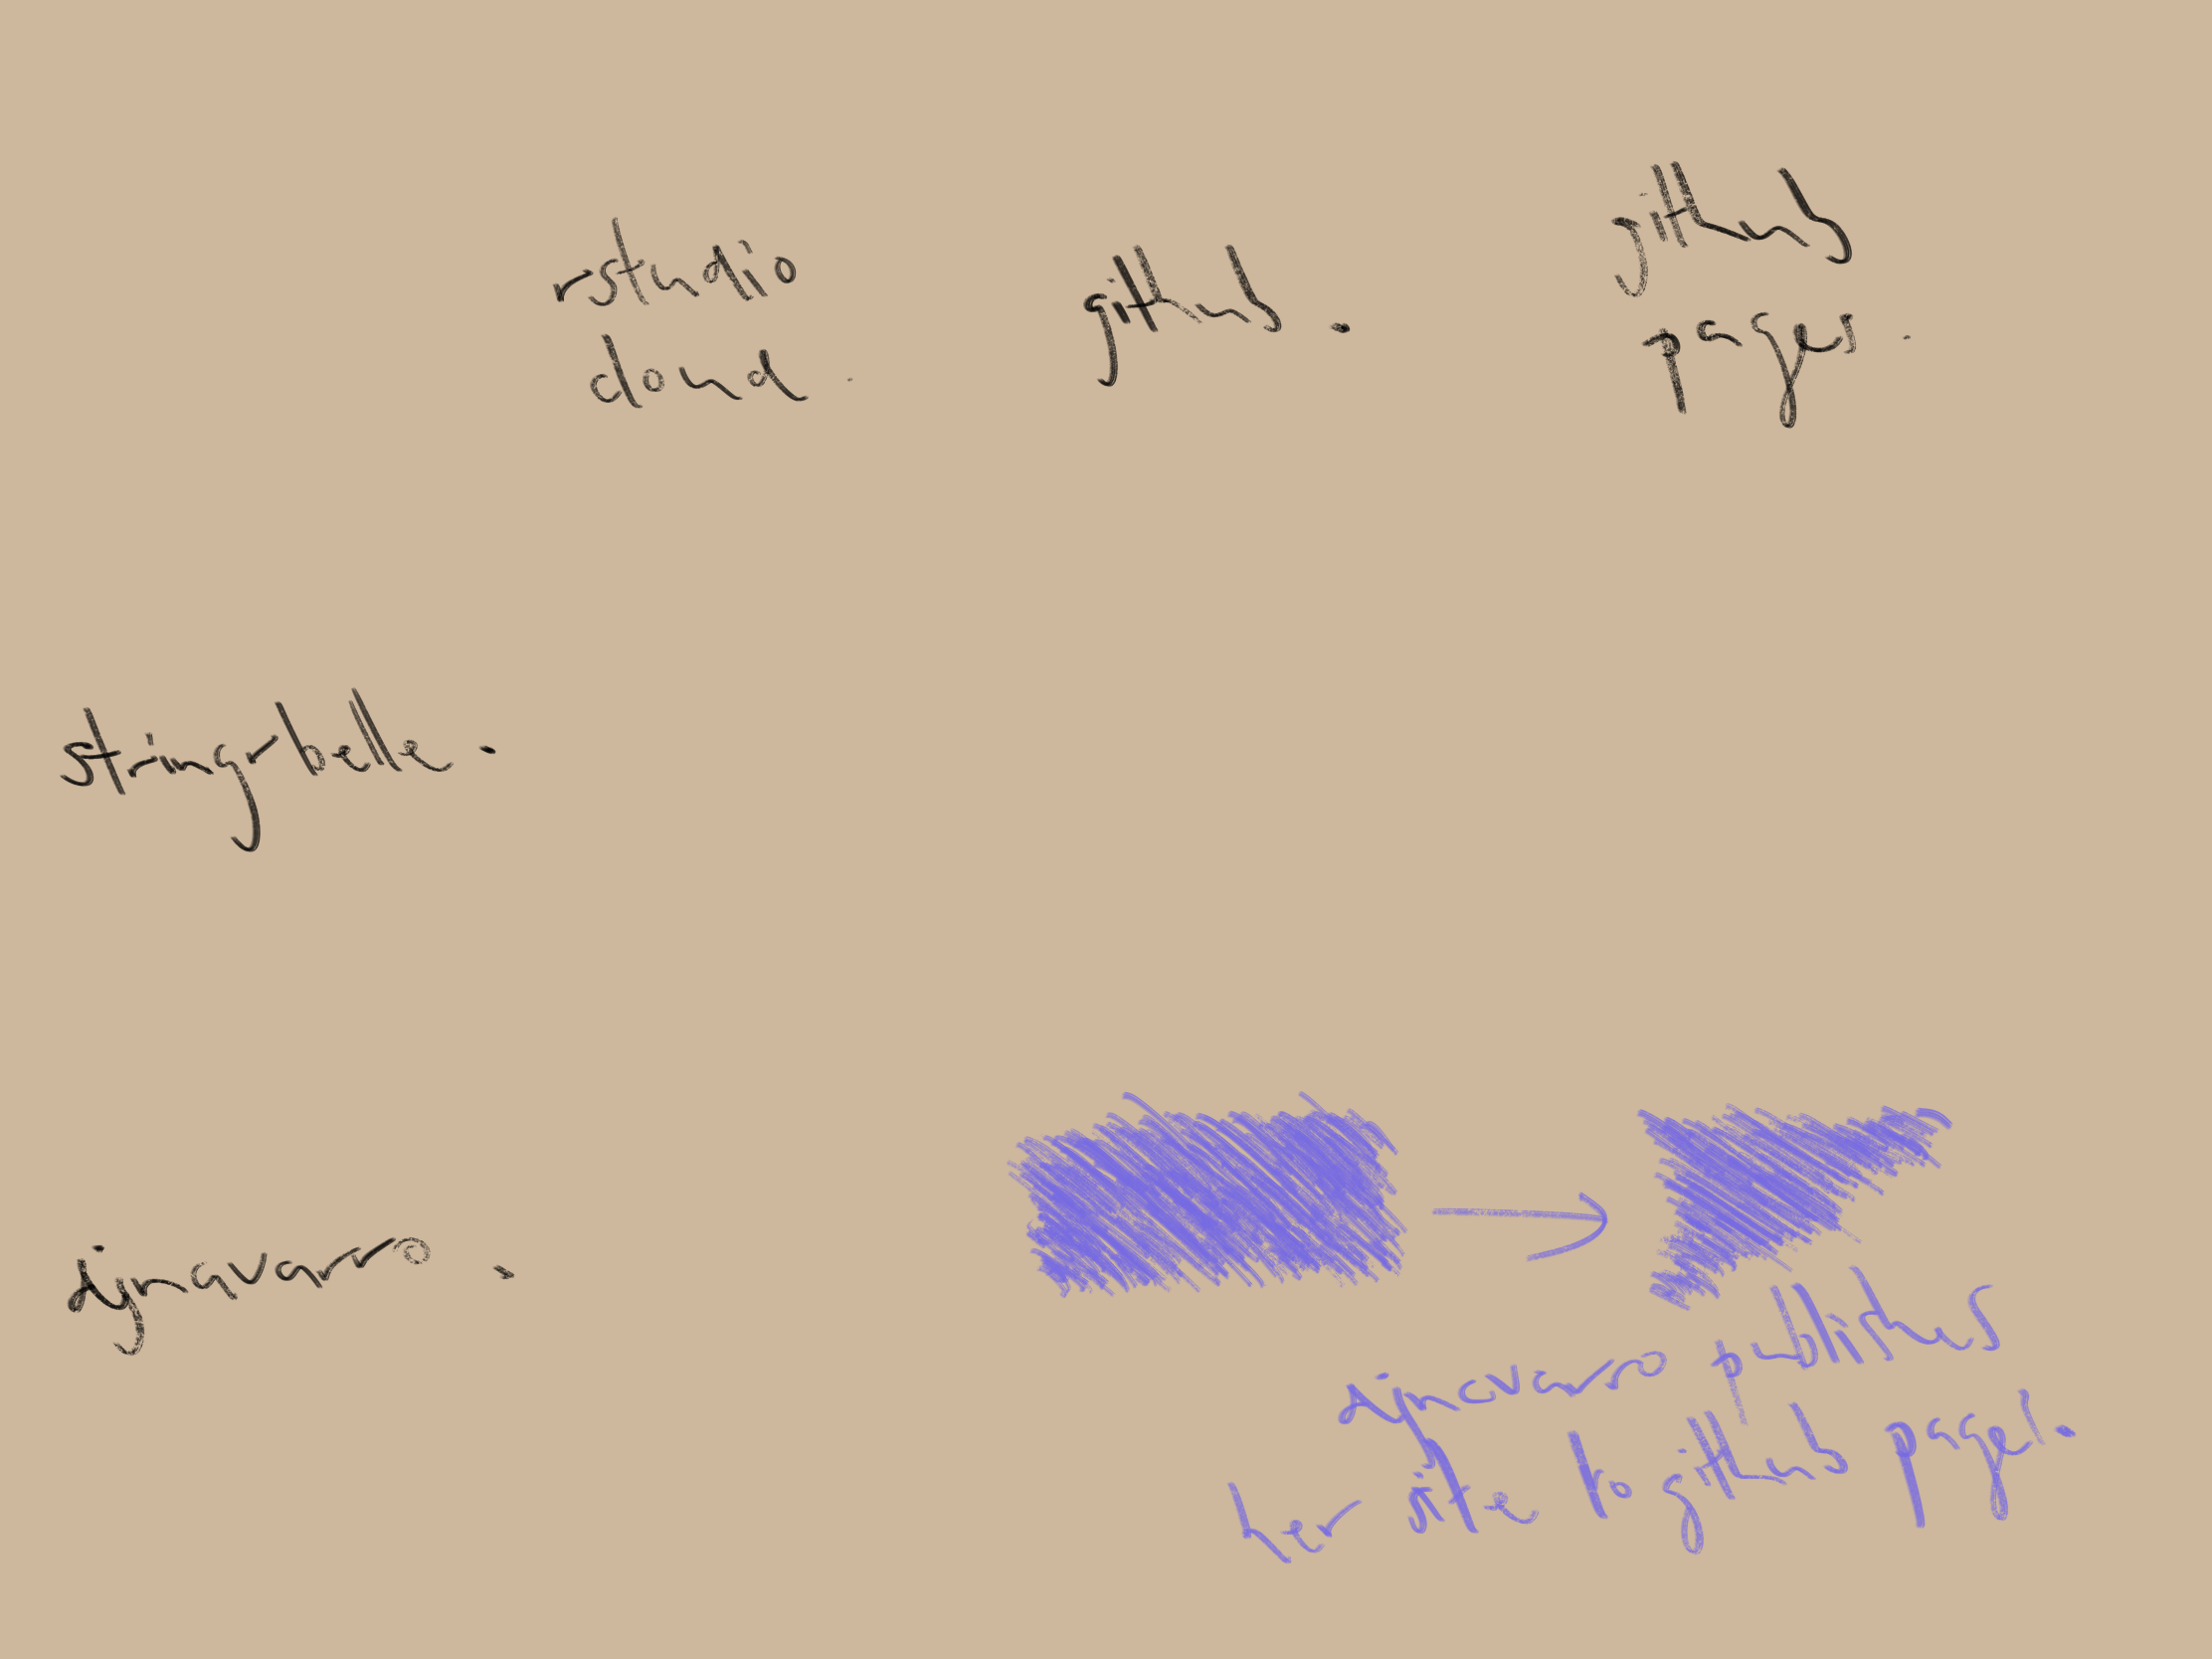 rstudio
cloud.
github.
github
pages.
string-belle.
djnavarro.
djnavarro publishes
her site to github pages.